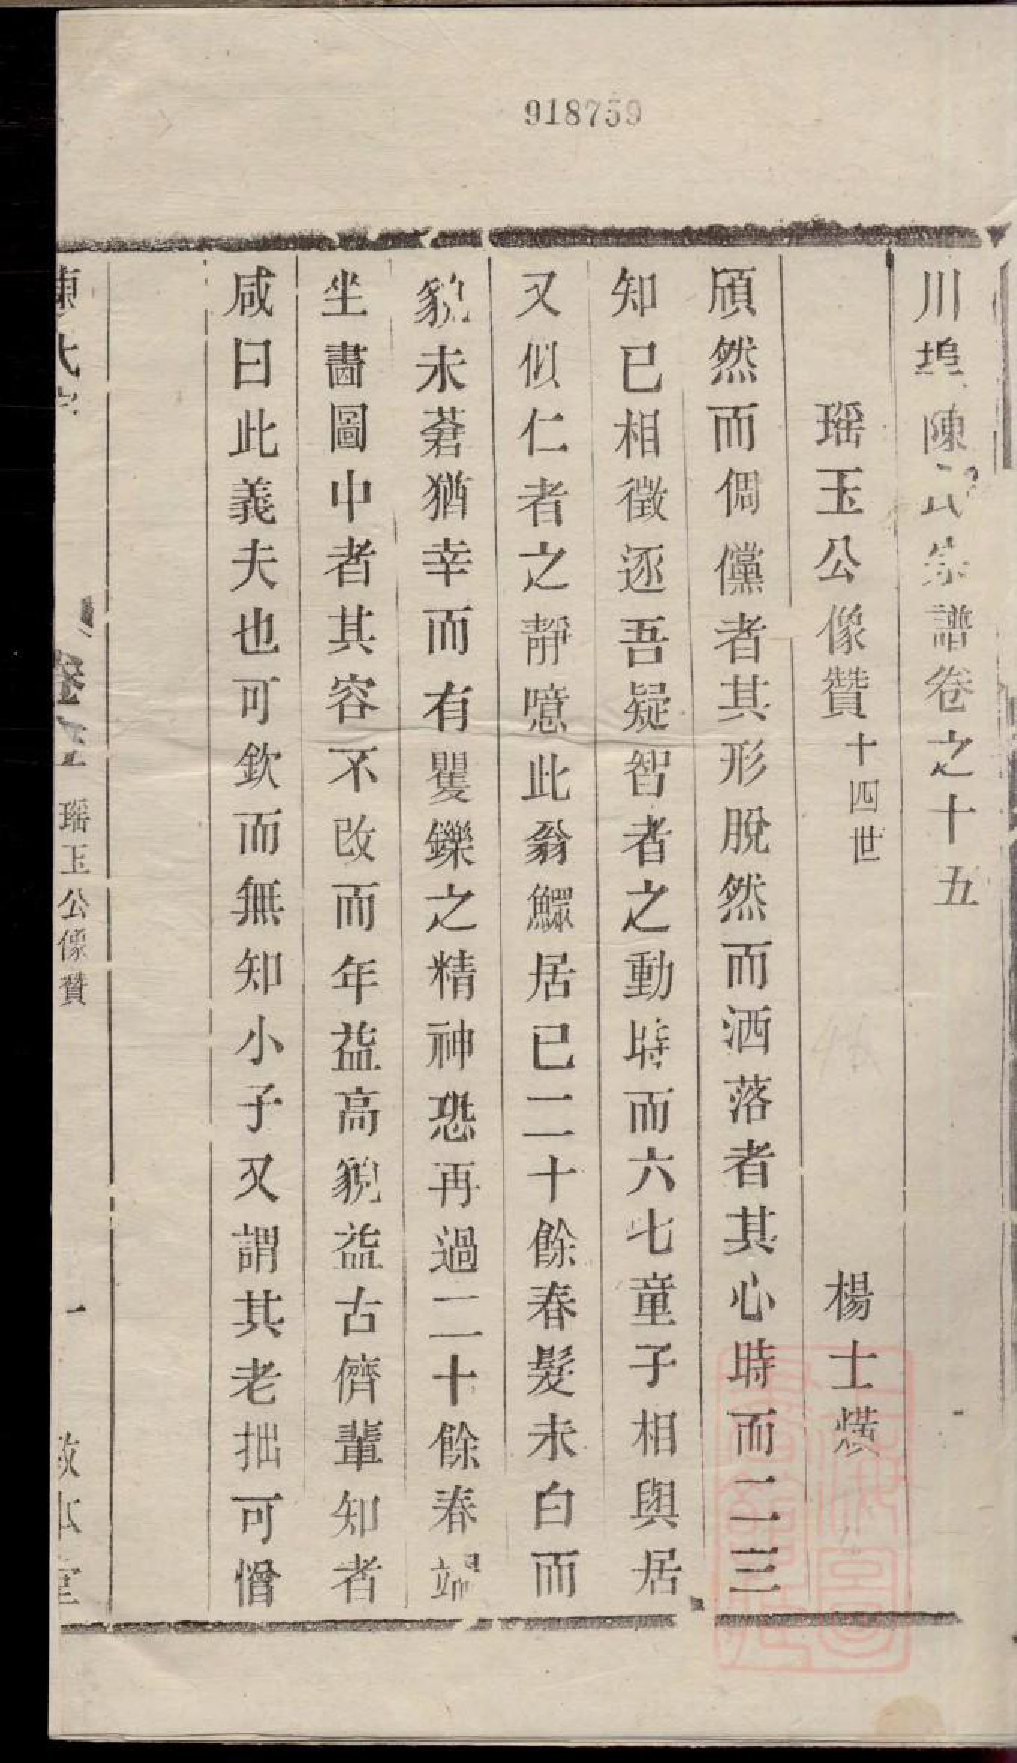 918759
川塢陳氏宗譜卷之十五
瑶玉公像贊十四世 楊士熿
頎然而倜儻者其形脫然而洒落者其心時而二三
知已相徵逐吾疑智者之動時而六七童子相與居
又似仁者之靜噫此翁鰥居已二十餘春髮未白而
貌未蒼猶幸而有矍鑠之精神恐再過二十餘春端
坐畵圖中者其容不改而年益高貌益古儕輩知者
咸曰此義夫也可欽而無知小子又謂其老拙可憎
陳氏宗 卷 瑶玉公像贊 一 敦本堂